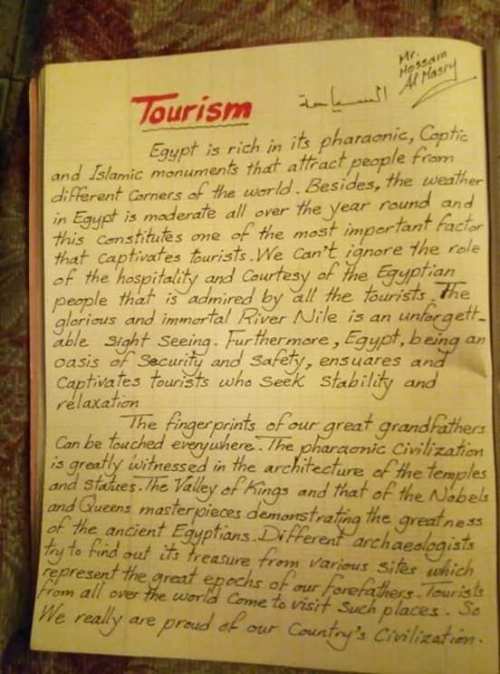 Mr.
Hossam
Al Masry
Tourism
السياحة
Egypt is rich in its pharaonic, Coptic
and Islamic monuments that attract people from
different Corners of the world. Besides, the weather
in Egypt is moderate all over the year round and
this Constitutes one of the most important factor
that Captivates tourists. We Can't ignore the role
of the hospitality and Courtesy of the Egyptian
people that is admired by all the tourists. The
glorious and immortal River Nile is an unforgett-
able Sight Seeing. Furthermore, Egypt, being an
oasis of Security and Safety, ensuares and
Captivates tourists who Seek Stability and
relaxation
The fingerprints of our great grandfathers
Can be touched everywhere. The pharaonic Civilization
is greatly witnessed in the architecture of the temples
and Statues. The Valley of Kings and that of the Nobels
and Queens masterpieces demonstrating the greatness
of the ancient Egyptians. Different archaeologists
try to find out its treasure from various Sites which
represent the great epochs of our forefathers. Tourists
from all over the world Come to visit Such places. So
We really are proud of our Country's Civilization.